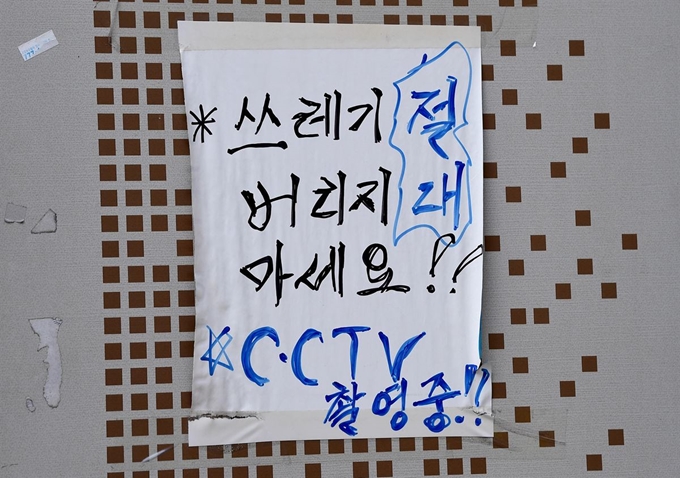 * 쓰레기 절대
버리지
마세요!!
☆C·CTV
촬영중!!